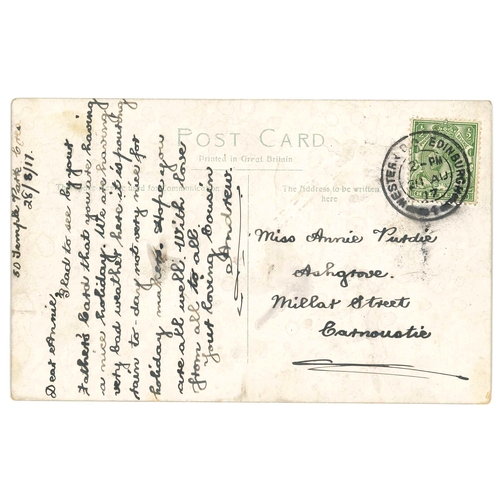 50 Temple Park Cres
28/8/17.
Dear Annie,
Glad to see by your
Father's Card that you are having
a nice holiday. We are having
very bad weather here it is pouring
rain to-day not very nice for
holiday makers. Hope you
are all well. With love
from all to all.
Your loving Cousin
Andrew.
POST CARD.
Printed in Great Britain
The Address to be written
here
WESTERN D.O. EDINBURGH
PM
AU
17
Miss Annie Purdie
Ashgrove.
Millar Street
Carnoustie